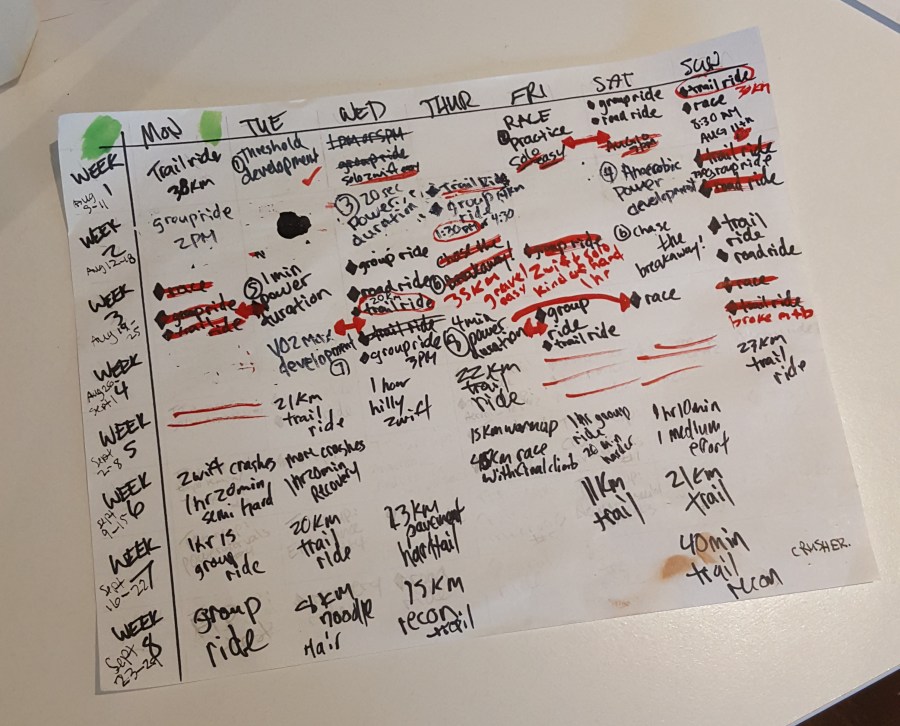 MON TUE WED THUR FRI SAT SUN
WEEK
1
Aug
Trail ride
38km
① Threshold
development
1PM or 5PM
group ride
solo zwift
RACE
Practice
solo
easy
group ride
road ride
trail ride
30KM
race
8:30 AM
AUG 11th
WEEK
2
Aug 12-18
group ride
2PM
③ 20 sec
Power
duration
Trail Ride
group
ride
1:30 4:30
④ Anaerobic
power
development
trail ride
group ride
road ride
WEEK
3
Aug 19-25
race
group ride
trail ride
⑤ 1 min
power
duration
group ride
road ride
20KM
trail ride
chase the
breakaway
35KM
gravel
easy
group ride
zwift solo
kind of hard
1hr
⑥ chase
the
breakaway!
trail
ride
road ride
race
trail ride
broke mtb
WEEK
4
Aug 26
Sept 1
VO2 Max
development
⑦
trail ride
group ride
3PM
4 min
⑧ power
duration
group
ride
trail ride
race
27KM
trail
ride
WEEK
5
Sept
2-8
21KM
trail
ride
1 hour
hilly
zwift
22KM
trail
ride
WEEK
6
Sept
9-15
zwift crashes
1hr20min
semi hard
more crashes
1hr20min
Recovery
15km warmup
race
climb
1hr group
ride
20 min
harder
1hr10min
1 medium
effort
WEEK
7
Sept
16-22
1hr15
group
ride
20KM
trail
ride
23KM
pavement
hardtail
11KM
trail
21KM
trail
WEEK
8
Sept
group
ride
noodle
Hair
15KM
recon
trail
40min
trail
recon
CRUSHER.